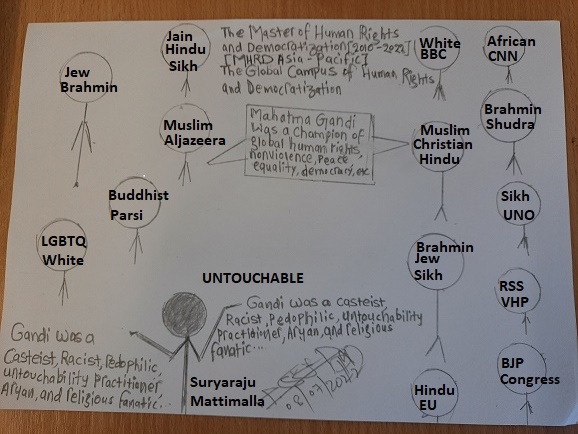 The Master of Human Rights
and Democratization[2010-2022]
[MHRD Asia-Pacific]
The Global Campus of Human Rights
and Democratization
Jew
Brahmin
Jain
Hindu
Sikh
White
BBC
African
CNN
Muslim
Aljazeera
Mahatma Gandi
was a champion of
global human rights,
nonviolence, peace
equality, democracy, etc
Muslim
Christian
Hindu
Brahmin
Shudra
Buddhist
Parsi
Sikh
UNO
LGBTQ
White
Brahmin
Jew
Sikh
RSS
VHP
UNTOUCHABLE
Gandi was a casteist,
Racist, Pedophilic, untouchability
Practitioner, Aryan, and religious
fanatic...
Gandi was a
Casteist, Racist, Pedophilic,
untouchability practitioner
Aryan, and religious fanatic...
Suryaraju
Mattimalla
08/07/2022
Hindu
EU
BJP
Congress